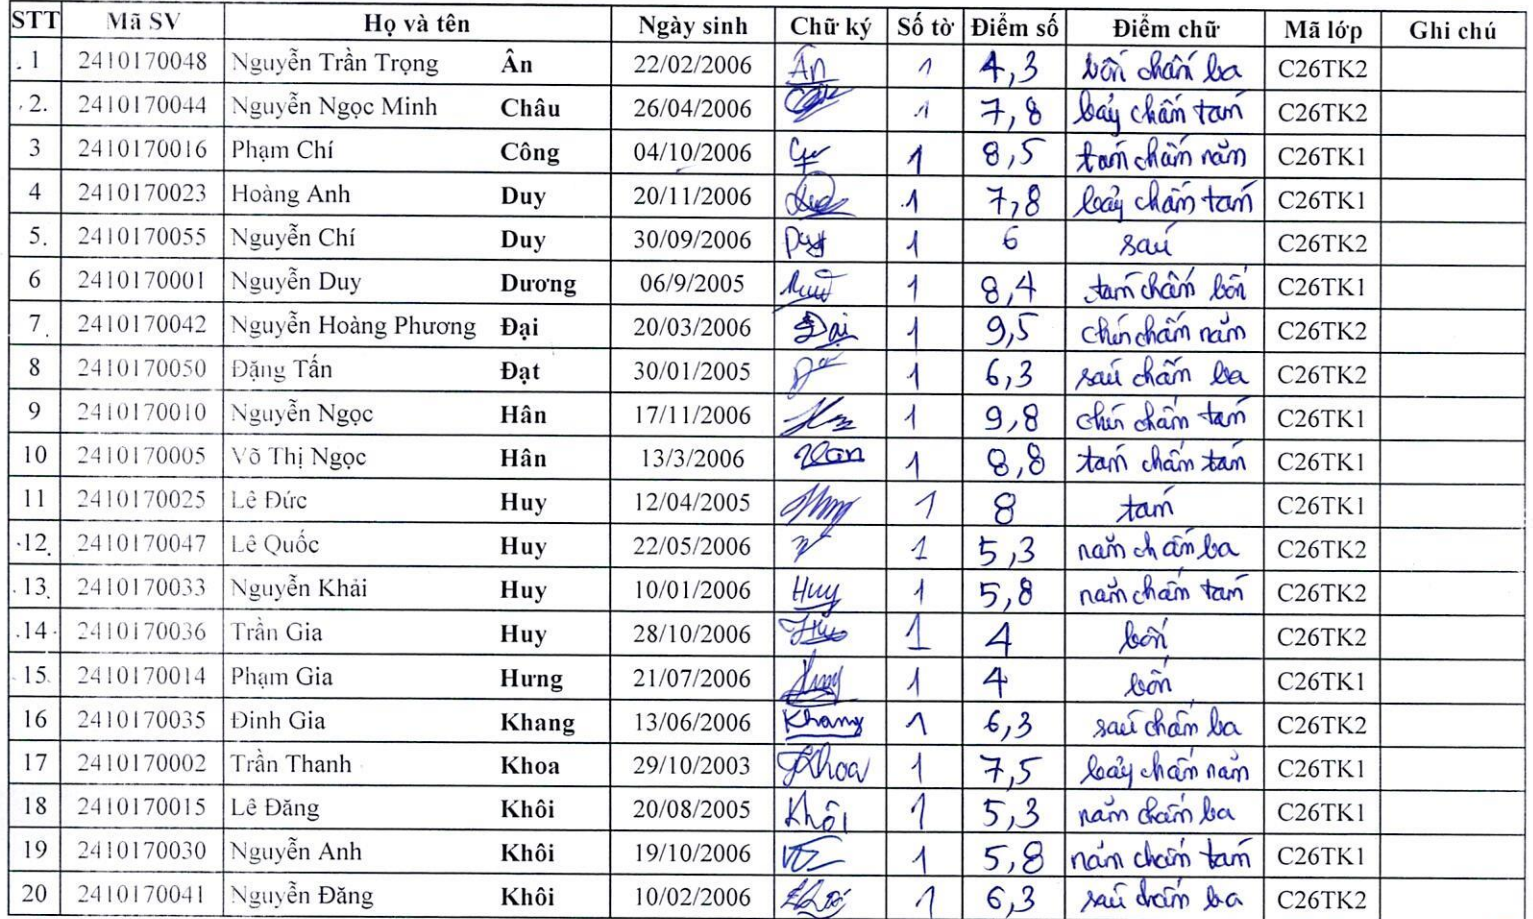 STT Mã SV Họ và tên Ngày sinh Chữ ký Số tờ Điểm số Điểm chữ Mã lớp Ghi chú
1 2410170048 Nguyễn Trần Trọng Ân 22/02/2006 Ân 1 4,3 bốn chấm ba C26TK2
2. 2410170044 Nguyễn Ngọc Minh Châu 26/04/2006 1 7,8 bảy chấm tám C26TK2
3 2410170016 Phạm Chí Công 04/10/2006 1 8,5 tám chấm năm C26TK1
4 2410170023 Hoàng Anh Duy 20/11/2006 1 7,8 bảy chấm tám C26TK1
5. 2410170055 Nguyễn Chí Duy 30/09/2006 Duy 1 6 sáu C26TK2
6 2410170001 Nguyễn Duy Dương 06/9/2005 1 8,4 tám chấm bốn C26TK1
7. 2410170042 Nguyễn Hoàng Phương Đại 20/03/2006 Đại 1 9,5 chín chấm năm C26TK2
8 2410170050 Đặng Tấn Đạt 30/01/2005 1 6,3 sáu chấm ba C26TK2
9 2410170010 Nguyễn Ngọc Hân 17/11/2006 1 9,8 chín chấm tám C26TK1
10 2410170005 Võ Thị Ngọc Hân 13/3/2006 1 8,8 tám chấm tám C26TK1
11 2410170025 Lê Đức Huy 12/04/2005 1 8 tám C26TK1
12. 2410170047 Lê Quốc Huy 22/05/2006 1 5,3 năm chấm ba C26TK2
13. 2410170033 Nguyễn Khải Huy 10/01/2006 Huy 1 5,8 năm chấm tám C26TK2
14 2410170036 Trần Gia Huy 28/10/2006 1 4 bốn C26TK2
15. 2410170014 Phạm Gia Hưng 21/07/2006 1 4 bốn C26TK1
16 2410170035 Đinh Gia Khang 13/06/2006 Khang 1 6,3 sáu chấm ba C26TK2
17 2410170002 Trần Thanh Khoa 29/10/2003 Khoa 1 7,5 bảy chấm năm C26TK1
18 2410170015 Lê Đăng Khôi 20/08/2005 Khôi 1 5,3 năm chấm ba C26TK1
19 2410170030 Nguyễn Anh Khôi 19/10/2006 1 5,8 năm chấm tám C26TK1
20 2410170041 Nguyễn Đăng Khôi 10/02/2006 1 6,3 sáu chấm ba C26TK2